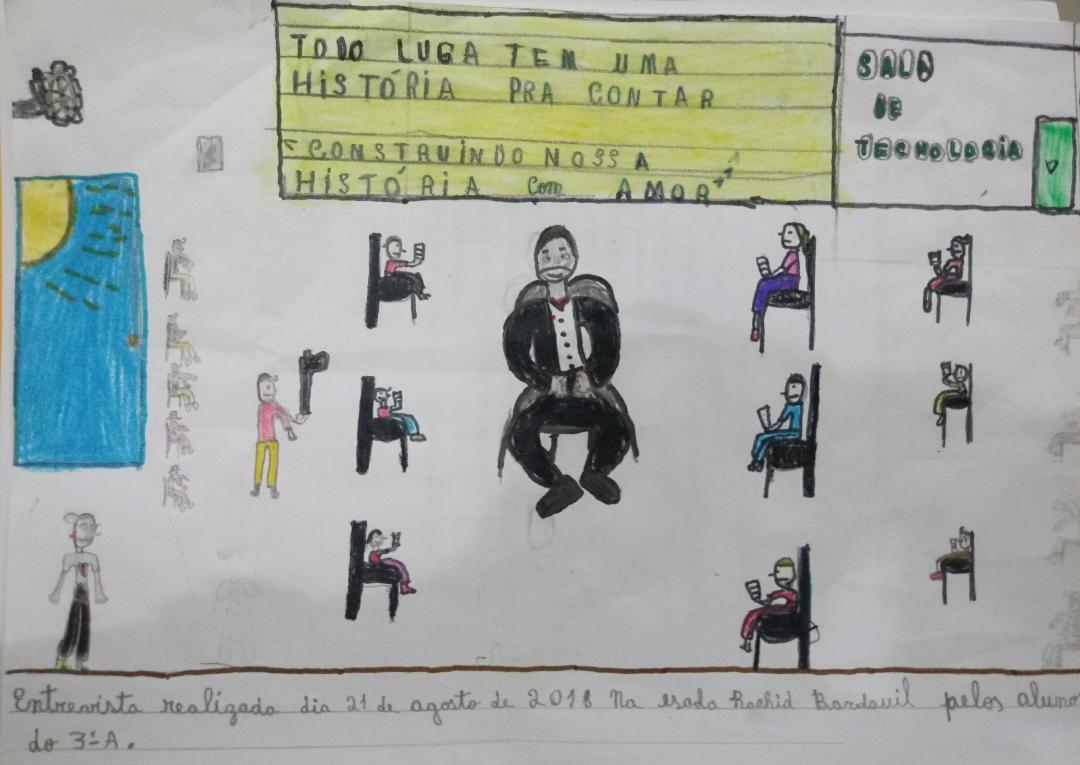 TODO LUGA TEM UMA
HISTÓRIA PRA CONTAR
"CONSTRUINDO NOSSA
HISTÓRIA COM AMOR"
SALA
DE
TECNOLOGIA
Entrevista realizada dia 21 de agosto de 2018 Na escola Rachid Bardauil pelos aluno
do 3º A.